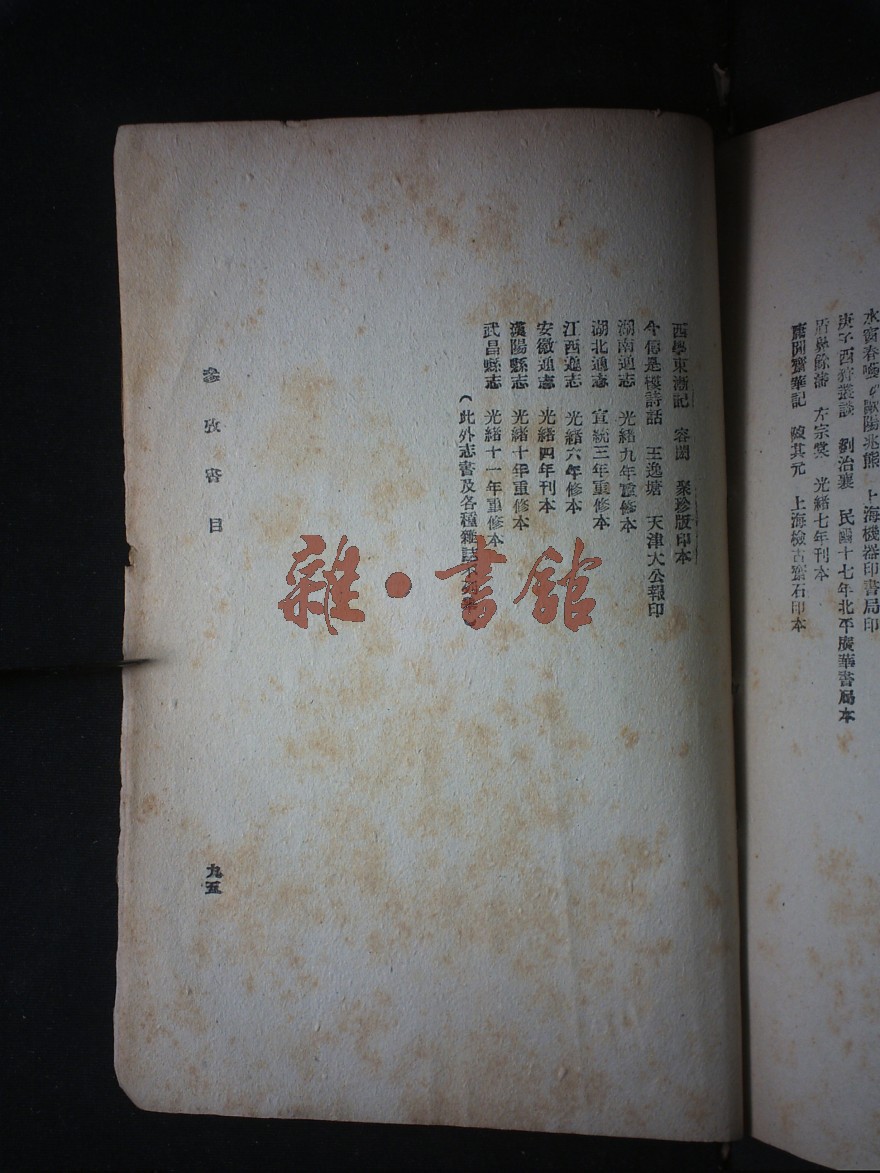 水窗春囈 歐陽兆熊 上海機器印書局印
庚子西狩叢談 劉治襄 民國十七年北平廣華書局本
盾鼻餘瀋 左宗棠 光緒七年刊本
庸閒齋筆記 陳其元 上海檢古齋石印本
西學東漸記 容閎 聚珍版印本
今傳是樓詩話 王逸塘 天津大公報印
湖南通志 光緒九年重修本
湖北通志 宣統三年重修本
江西通志 光緒六年修本
安徽通志 光緒四年刊本
漢陽縣志 光緒十年重修本
武昌縣志 光緒十一年重修本
（此外志書及各種雜誌
參攷書目
九五
雜·書館